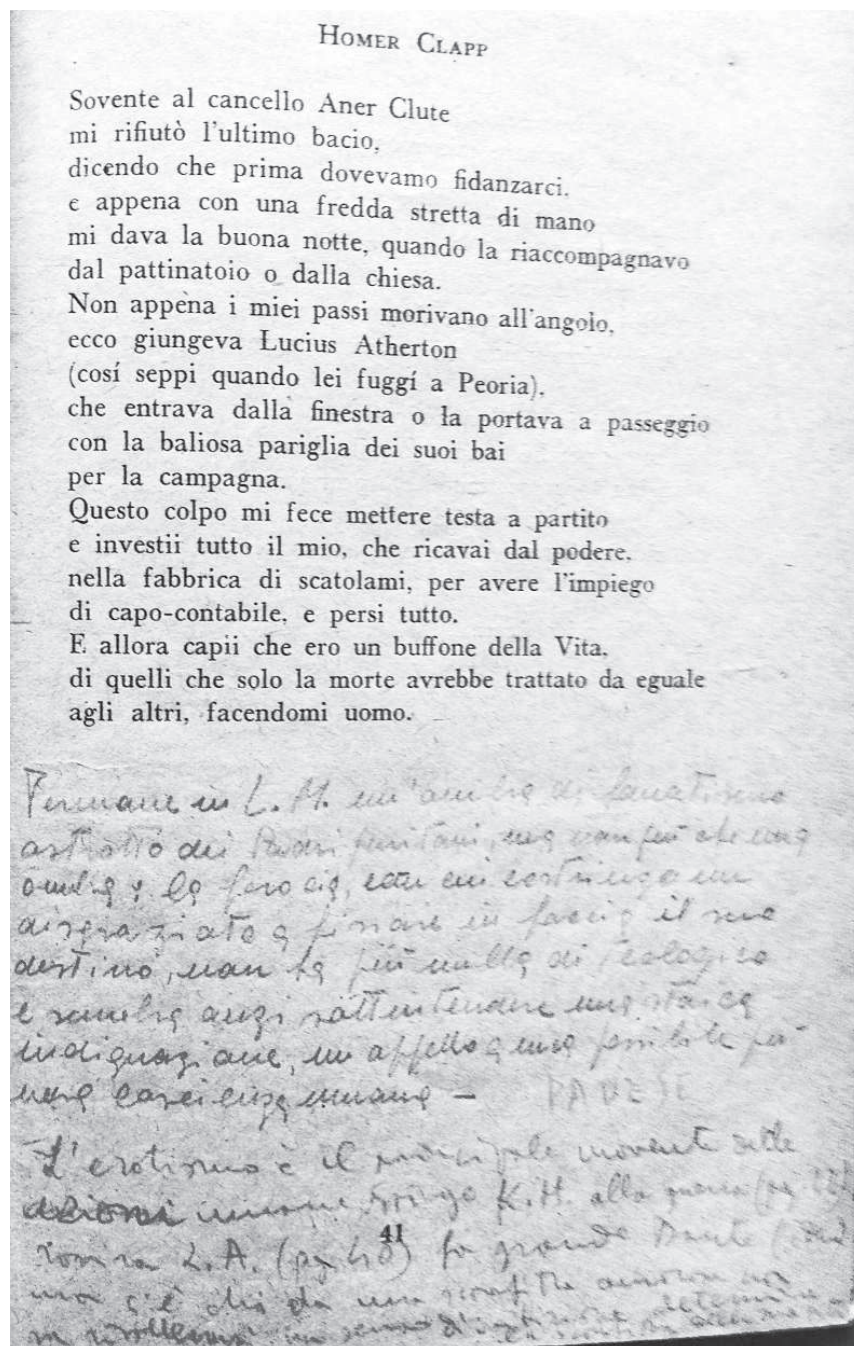 HOMER CLAPP
Sovente al cancello Aner Clute
mi rifiutò l'ultimo bacio,
dicendo che prima dovevamo fidanzarci,
e appena con una fredda stretta di mano
mi dava la buona notte, quando la riaccompagnavo
dal pattinatoio o dalla chiesa.
Non appena i miei passi morivano all'angolo,
ecco giungeva Lucius Atherton
(cosí seppi quando lei fuggí a Peoria),
che entrava dalla finestra o la portava a passeggio
con la baliosa pariglia dei suoi bai
per la campagna.
Questo colpo mi fece mettere testa a partito
e investii tutto il mio, che ricavai dal podere,
nella fabbrica di scatolami, per avere l'impiego
di capo-contabile, e persi tutto.
E allora capii che ero un buffone della Vita,
di quelli che solo la morte avrebbe trattato da eguale
agli altri, facendomi uomo.
Permane in L. M. un'ombra di fanatismo
astratto dei Padri puritani, ma non più che una
ombra: la ferocia, con cui costringe un
disgraziato a fissare in faccia il suo
destino, non ha più nulla di teologico
e sembra anzi sottintendere una stoica
indignazione, un appello a una possibile più
umana - PAVESE
L'erotismo è il principale movente delle
azioni umane, spinge K.H. alla guerra
41
L.A. (pg 40) fa grande Dante
ma c'è chi da una